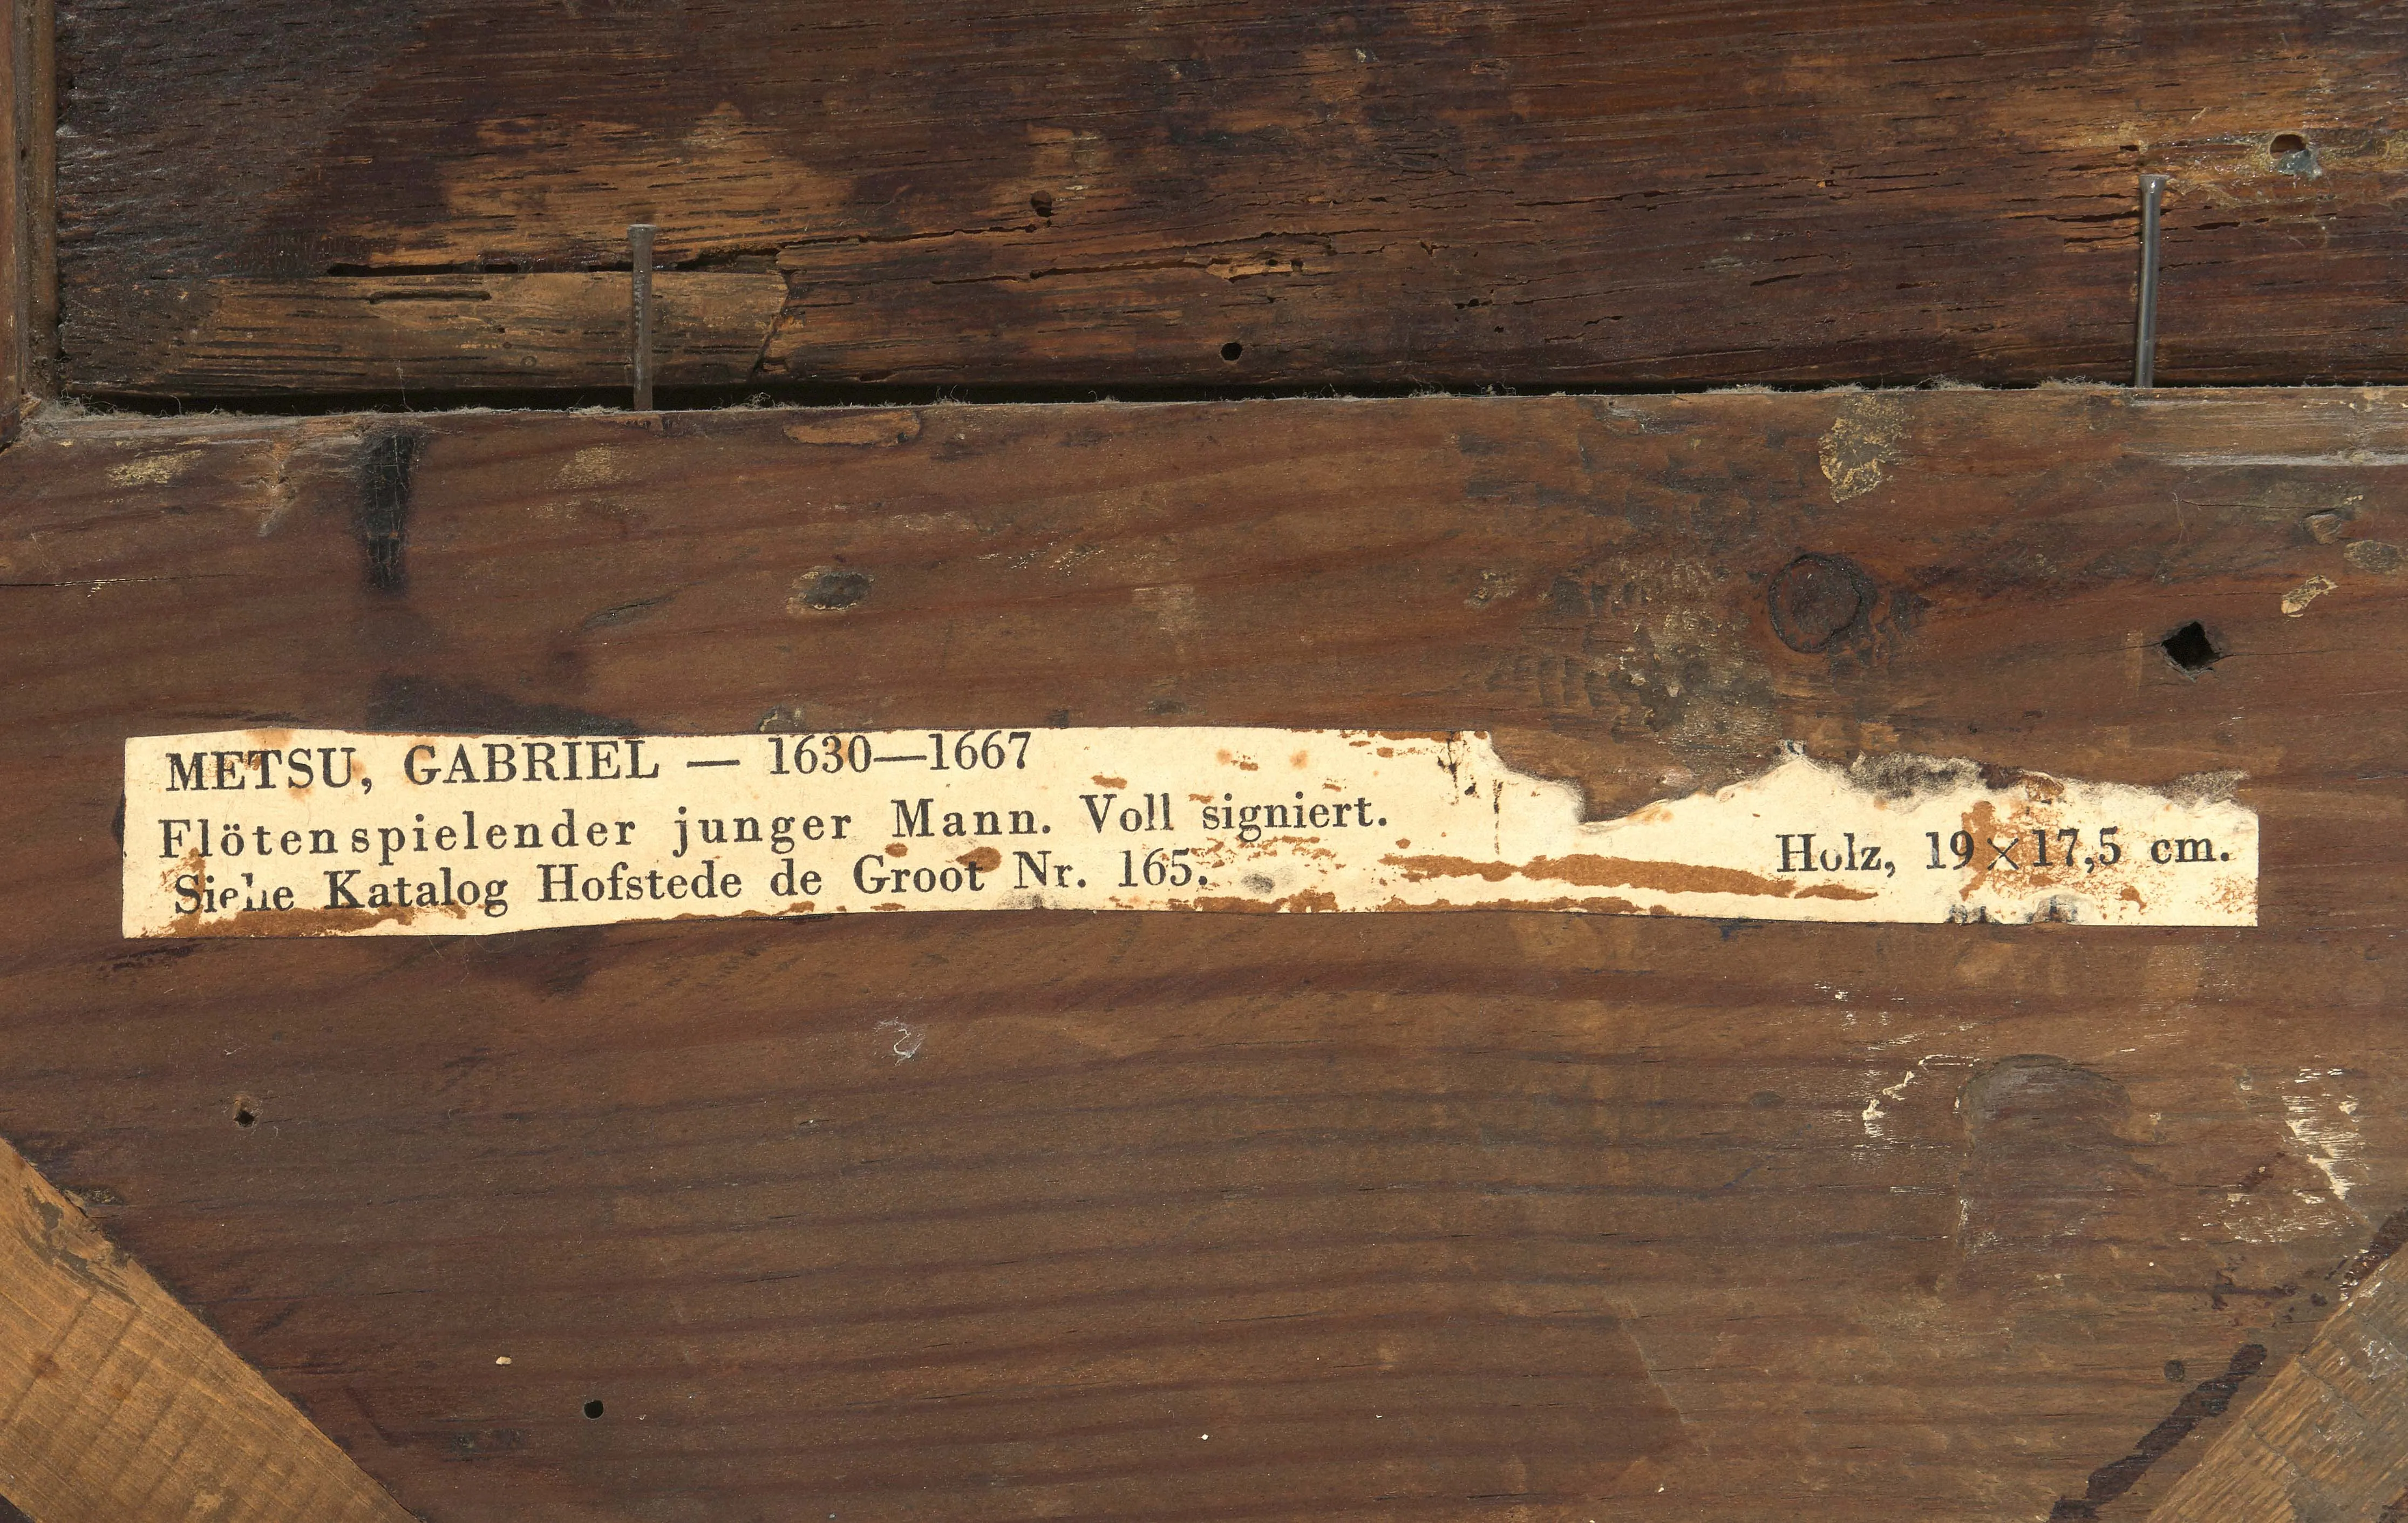 METSU, GABRIEL — 1630—1667
Flötenspielender junger Mann. Voll signiert.
Siehe Katalog Hofstede de Groot Nr. 165.
Holz, 19×17,5 cm.